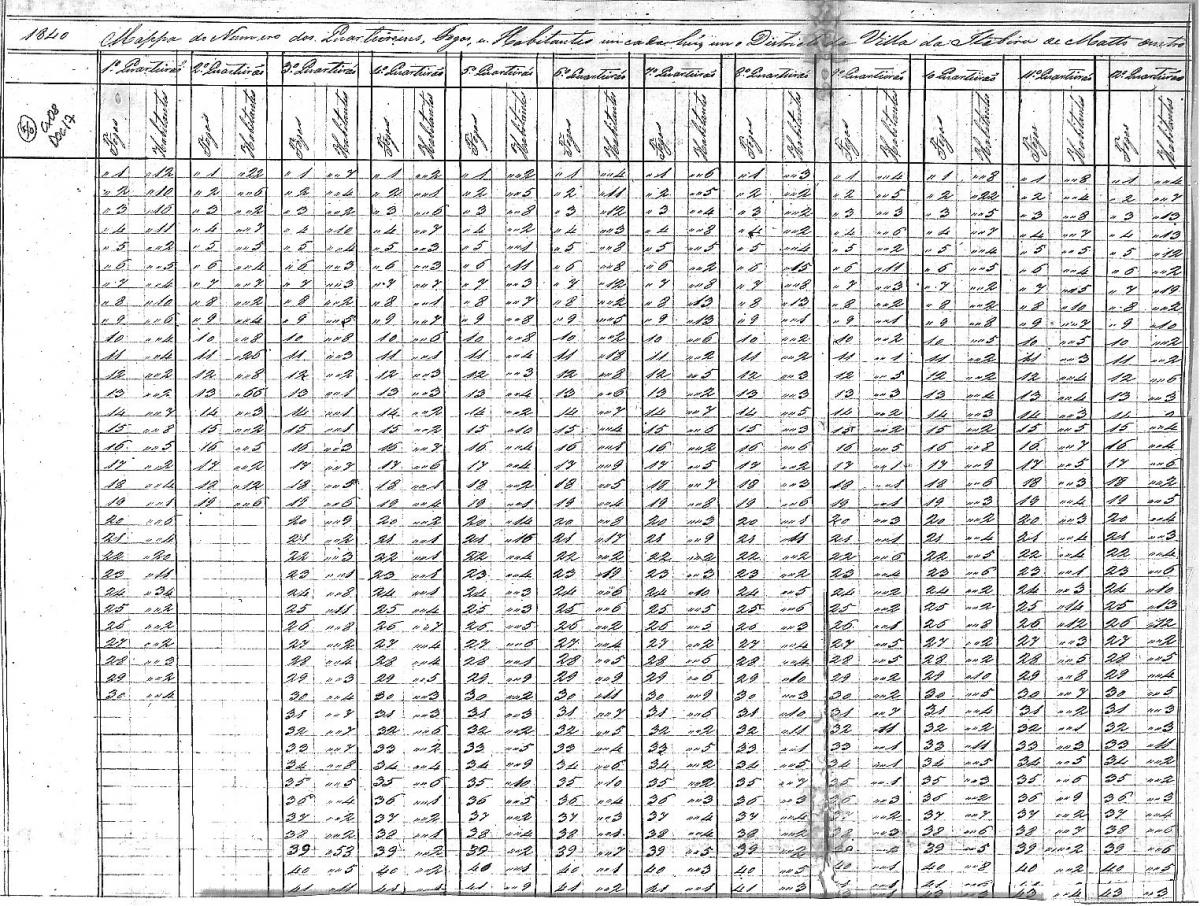 1840 Mappa do Numero dos Quarteiroens, Fogos, e Habitantes em cada hum no Districto da Villa da Itabira de Matto dentro
5/6 Cx08 Doc17
1º Quarteirão 2º Quarteirão 3º Quarteirão 4º Quarteirão 5º Quarteirão 6º Quarteirão 7º Quarteirão 8º Quarteirão 9º Quarteirão 10 Quarteirão 11º Quarteirão 12º Quarteirão
Fogos Habitantes Fogos Habitantes Fogos Habitantes Fogos Habitantes Fogos Habitantes Fogos Habitantes Fogos Habitantes Fogos Habitantes Fogos Habitantes Fogos Habitantes Fogos Habitantes Fogos Habitantes
1 12 1 22 1 7 1 2 1 2 1 4 1 6 1 3 1 4 1 8 1 8 1 4
2 10 2 6 2 4 2 1 2 5 2 11 2 5 2 2 2 5 2 22 2 4 2 7
3 16 3 2 3 2 3 6 3 8 3 12 3 4 3 2 3 3 3 5 3 8 3 13
4 11 4 7 4 10 4 7 4 2 4 3 4 8 4 2 4 6 4 7 4 7 4 13
5 2 5 5 5 4 5 3 5 1 5 8 5 5 5 4 5 2 5 4 5 5 5 12
6 5 6 4 6 3 6 3 6 11 6 8 6 2 6 15 6 11 6 5 6 4 6 2
7 4 7 7 7 3 7 7 7 3 7 12 7 8 7 8 7 3 7 2 7 15 7 19
8 10 8 2 8 2 8 1 8 7 8 2 8 13 8 13 8 2 8 2 8 10 8 2
9 6 9 4 9 5 9 7 9 8 9 5 9 13 9 1 9 1 9 8 9 7 9 10
10 4 10 8 10 8 10 6 10 8 10 2 10 6 10 2 10 2 10 5 10 5 10 2
11 4 11 26 11 3 11 1 11 4 11 18 11 2 11 4 11 1 11 2 11 3 11 2
12 2 12 8 12 2 12 3 12 3 12 8 12 5 12 3 12 5 12 2 12 4 12 6
13 2 13 66 13 1 13 3 13 4 13 6 13 2 13 3 13 3 13 4 13 4 13 3
14 7 14 3 14 1 14 2 14 2 14 7 14 7 14 5 14 2 14 3 14 3 14 2
15 8 15 2 15 1 15 2 15 10 15 4 15 6 15 3 15 2 15 2 15 5 15 4
16 5 16 5 16 3 16 7 16 4 16 1 16 2 16 6 16 5 16 8 16 7 16 4
17 2 17 2 17 7 17 6 17 4 17 9 17 5 17 2 17 1 17 9 17 5 17 6
18 4 18 12 18 5 18 1 18 2 18 5 18 7 18 3 18 1 18 6 18 3 18 2
19 1 19 6 19 6 19 4 19 1 19 4 19 8 19 6 19 1 19 3 19 4 19 5
20 6 20 9 20 2 20 14 20 8 20 3 20 1 20 3 20 2 20 3 20 4
21 4 21 2 21 1 21 16 21 17 21 9 21 11 21 1 21 4 21 4 21 3
22 20 22 3 22 1 22 4 22 2 22 2 22 2 22 6 22 5 22 4 22 4
23 11 23 1 23 1 23 4 23 19 23 3 23 2 23 4 23 6 23 1 23 6
24 34 24 8 24 1 24 3 24 6 24 10 24 5 24 2 24 2 24 3 24 10
25 2 25 11 25 4 25 3 25 6 25 5 25 6 25 2 25 2 25 14 25 13
26 2 26 8 26 7 26 5 26 2 26 5 26 3 26 1 26 8 26 12 26 12
27 2 27 2 27 4 27 6 27 4 27 2 27 3 27 5 27 2 27 3 27 2
28 3 28 4 28 4 28 1 28 5 28 6 28 4 28 5 28 2 28 5 28 5
29 2 29 3 29 5 29 9 29 9 29 6 29 10 29 2 29 10 29 8 29 4
30 4 30 4 30 3 30 2 30 11 30 9 30 3 30 2 30 5 30 7 30 5
31 7 31 3 31 3 31 7 31 6 31 10 31 7 31 4 31 2 31 1
32 7 32 6 32 2 32 5 32 2 32 11 32 11 32 2 32 2 32 3
33 7 33 2 33 5 33 4 33 5 33 1 33 1 33 11 33 3 33 11
34 8 34 4 34 9 34 6 34 2 34 5 34 1 34 5 34 5 34 2
35 5 35 6 35 10 35 10 35 2 35 7 35 1 35 3 35 6 35 2
36 4 36 1 36 5 36 4 36 3 36 3 36 3 36 2 36 9 36 3
37 2 37 2 37 2 37 3 37 4 37 4 37 7 37 2 37 4
38 2 38 1 38 4 38 1 38 4 38 2 38 3 38 6 38 7 38 6
39 53 39 2 39 2 39 7 39 5 39 2 39 5 39 2 39 6
40 5 40 2 40 1 40 1 40 3 40 1 40 1 40 8 40 2 40 2
41 11 41 1 41 9 41 2 41 1 41 3